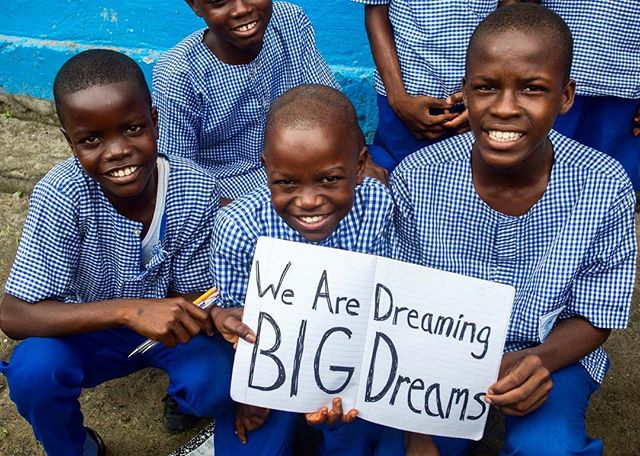 We Are Dreaming
BIG Dreams